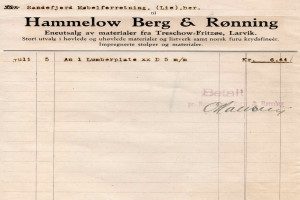 Sandefjord Møbelforretning, (Lie),her.
til
Hammelow Berg & Rønning
Eneutsalg av materialer fra Treschow-Fritzøe, Larvik.
Stort utvalg i høvlede og uhøvlede materialer og listverk samt norsk furu krydsfinér.
Impregnerte stolper og materialer.
Juli 5 An 1 Lumberplate xx D 5 m/m Kr. 6.64
Betalt